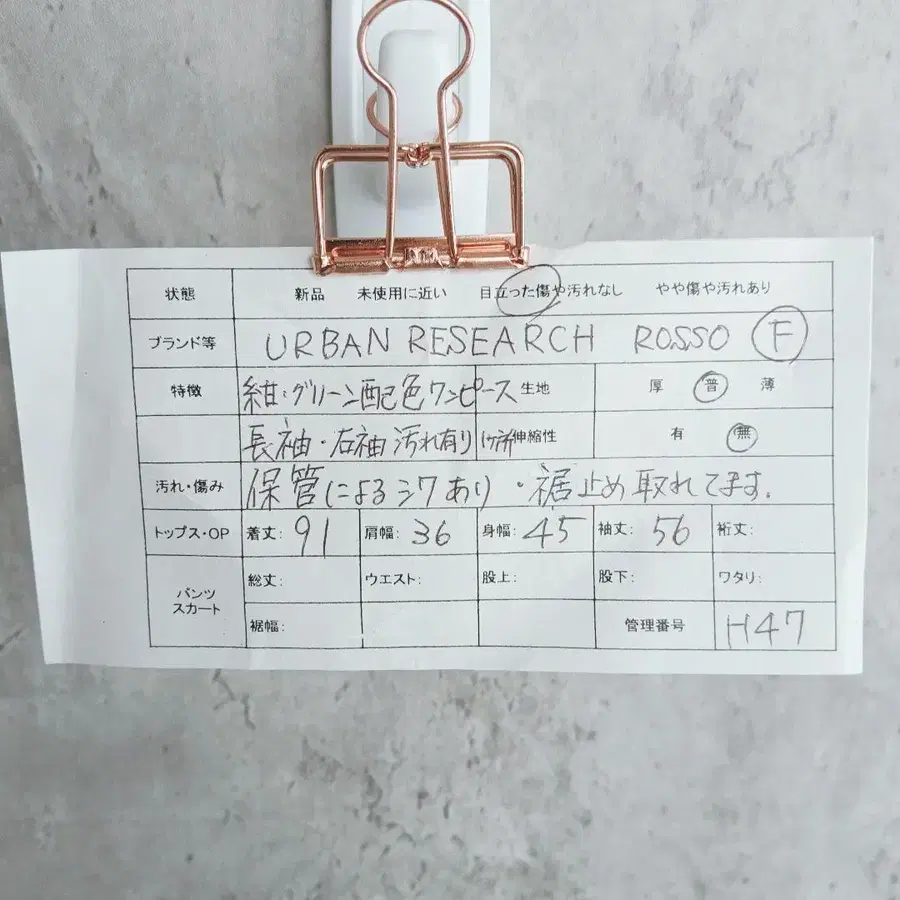 状態 新品 未使用に近い 目立った傷や汚れなし やや傷や汚れあり
ブランド等 URBAN RESEARCH ROSSO F
特徴 紺・グリーン配色ワンピース 生地 厚 普 薄
長袖・右袖汚れ有り 1ケ所 伸縮性 有 無
汚れ・傷み 保管によるシワあり・裾止め取れてます.
トップス・OP 着丈: 91 肩幅: 36 身幅: 45 袖丈: 56 裄丈:
パンツ スカート 総丈: ウエスト: 股上: 股下: ワタリ:
裾幅: 管理番号 H47